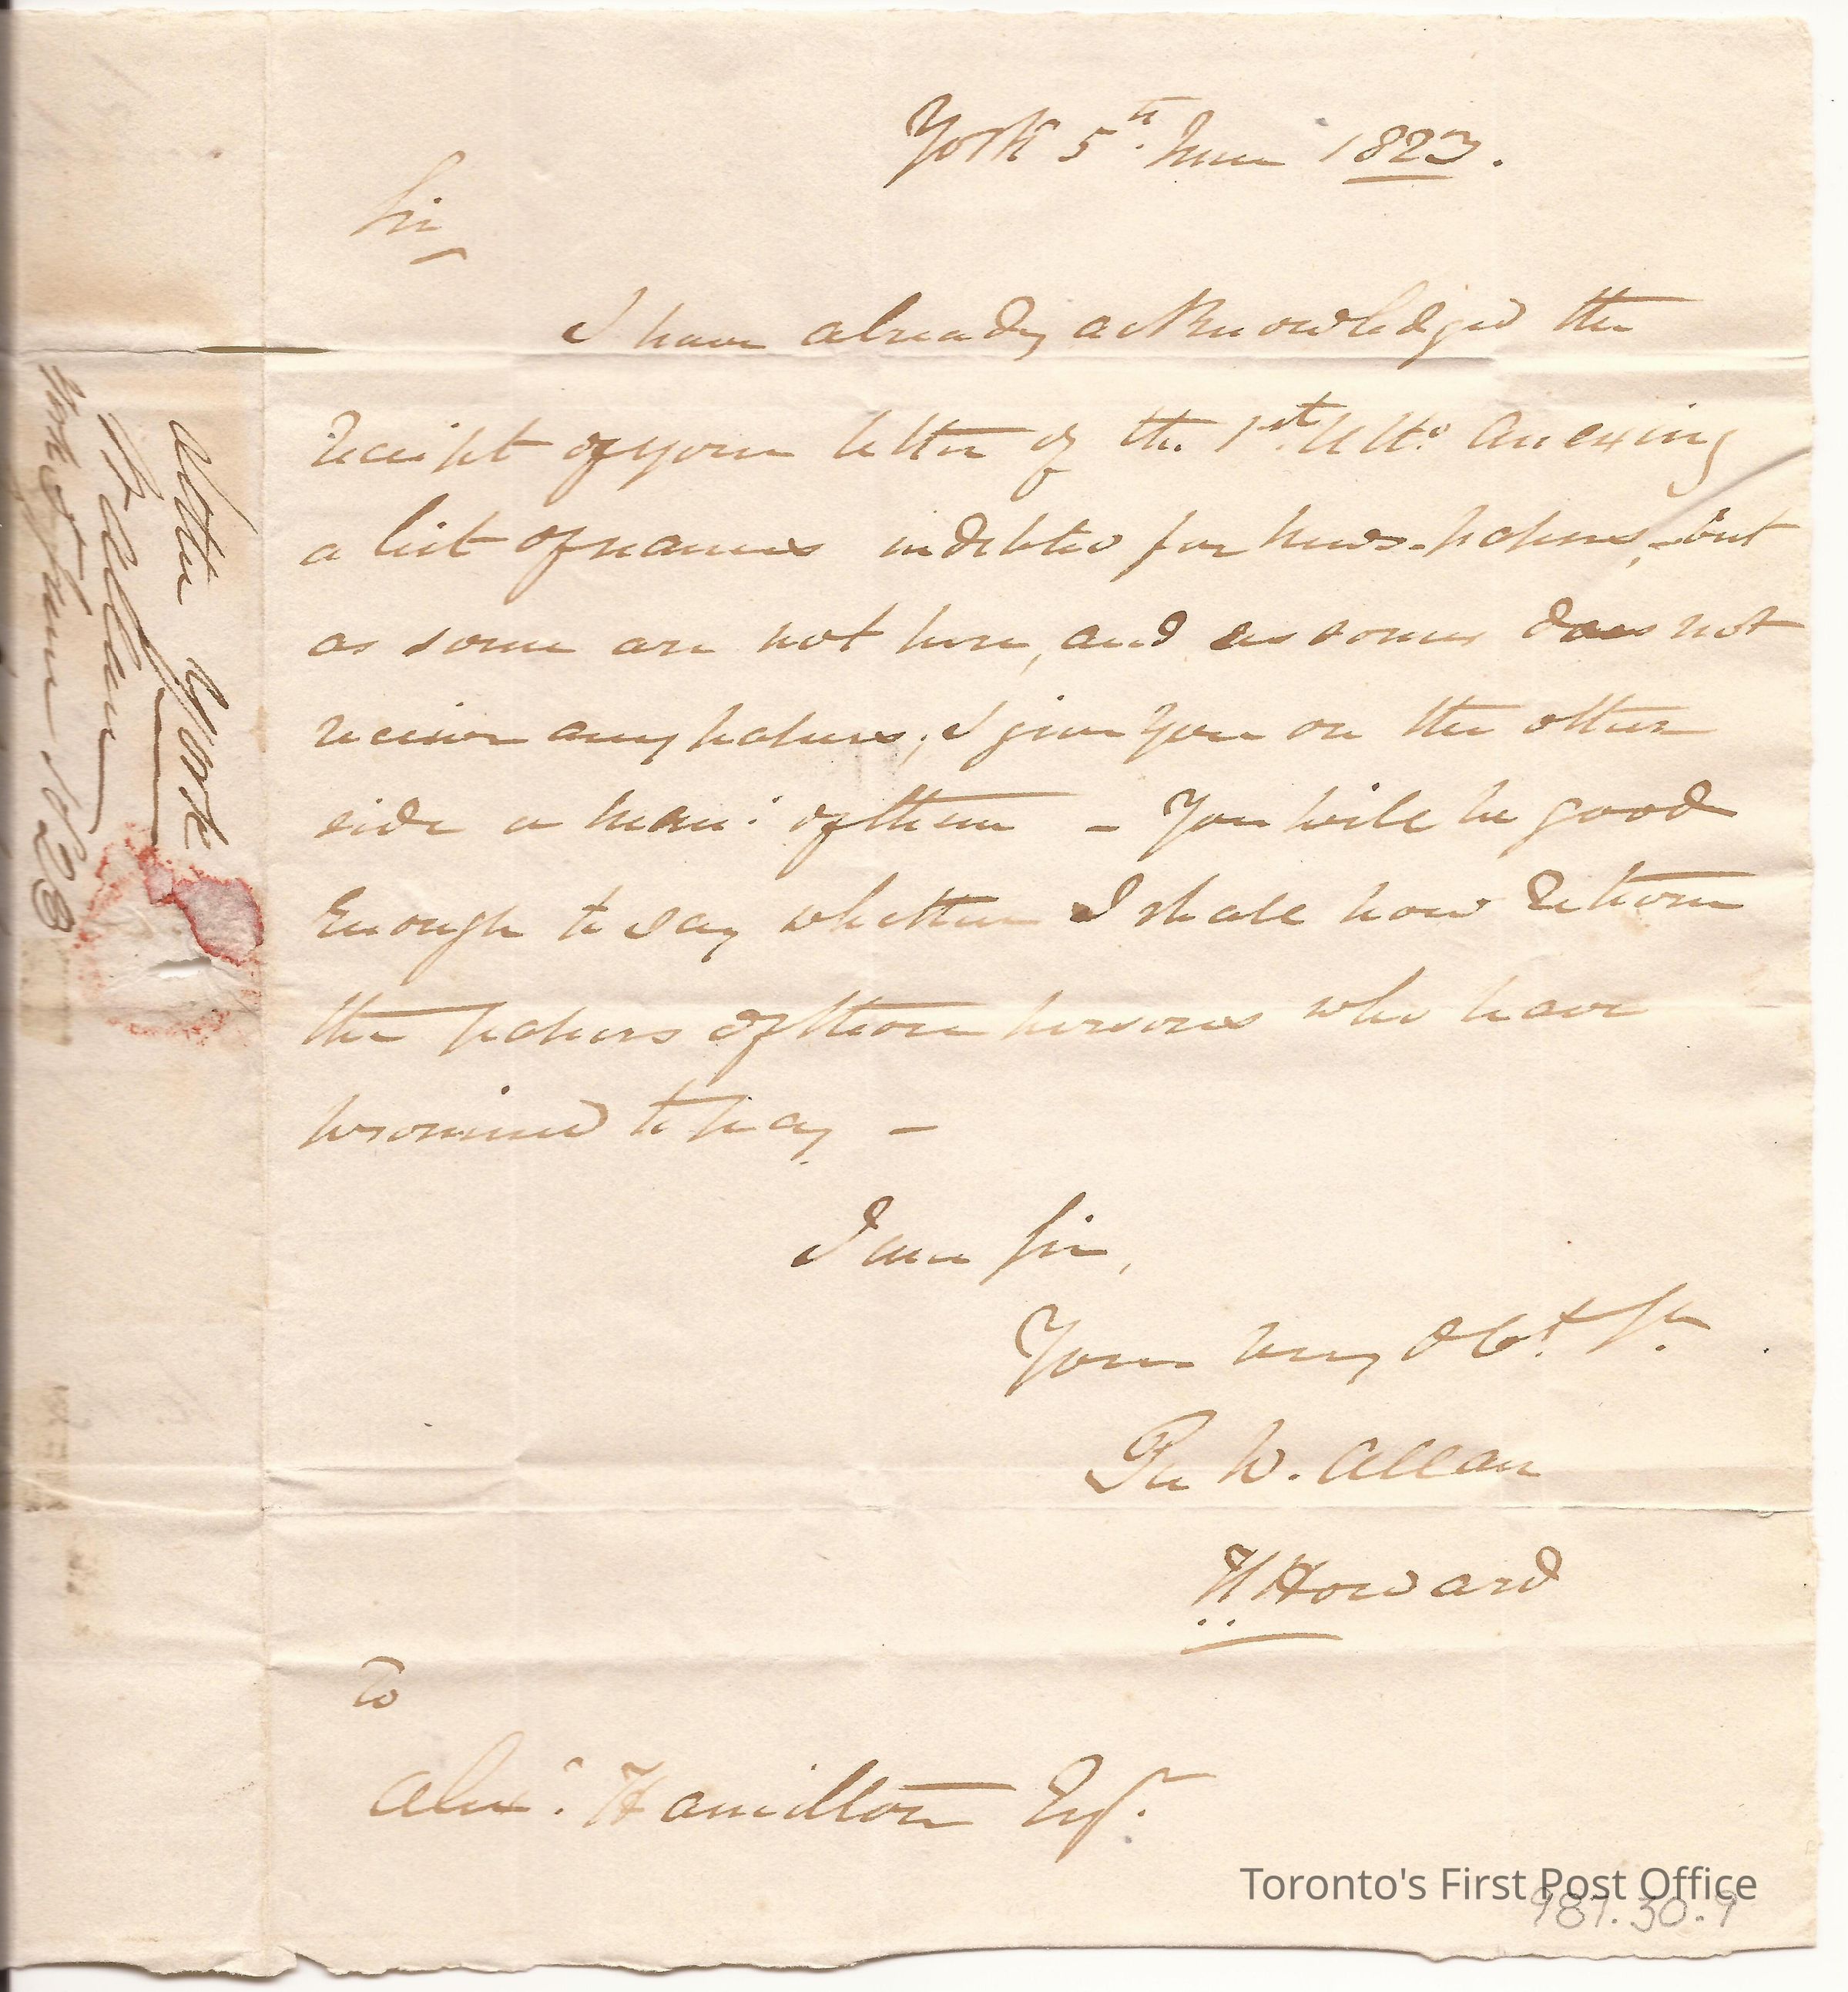 York 5th. June 1823.
Sir
I have already acknowledged the
receipt of your letter of the 1st. Ulto. anexing
a list of names indebted for news-papers, - but
as some are not here, and as some does not
receive any papers, I give you on the other
side a mem: of them - You will be good
Enough to say whether I shall now return
the papers of those persons who have
promised to pay -
I am Sir,
Your very Obt. St.
Per W. Allan
H Howard
To
Alexr. Hamilton Esqr.
York
W Allan
York 5 June 1823
Toronto's First Post Office
987.30.9